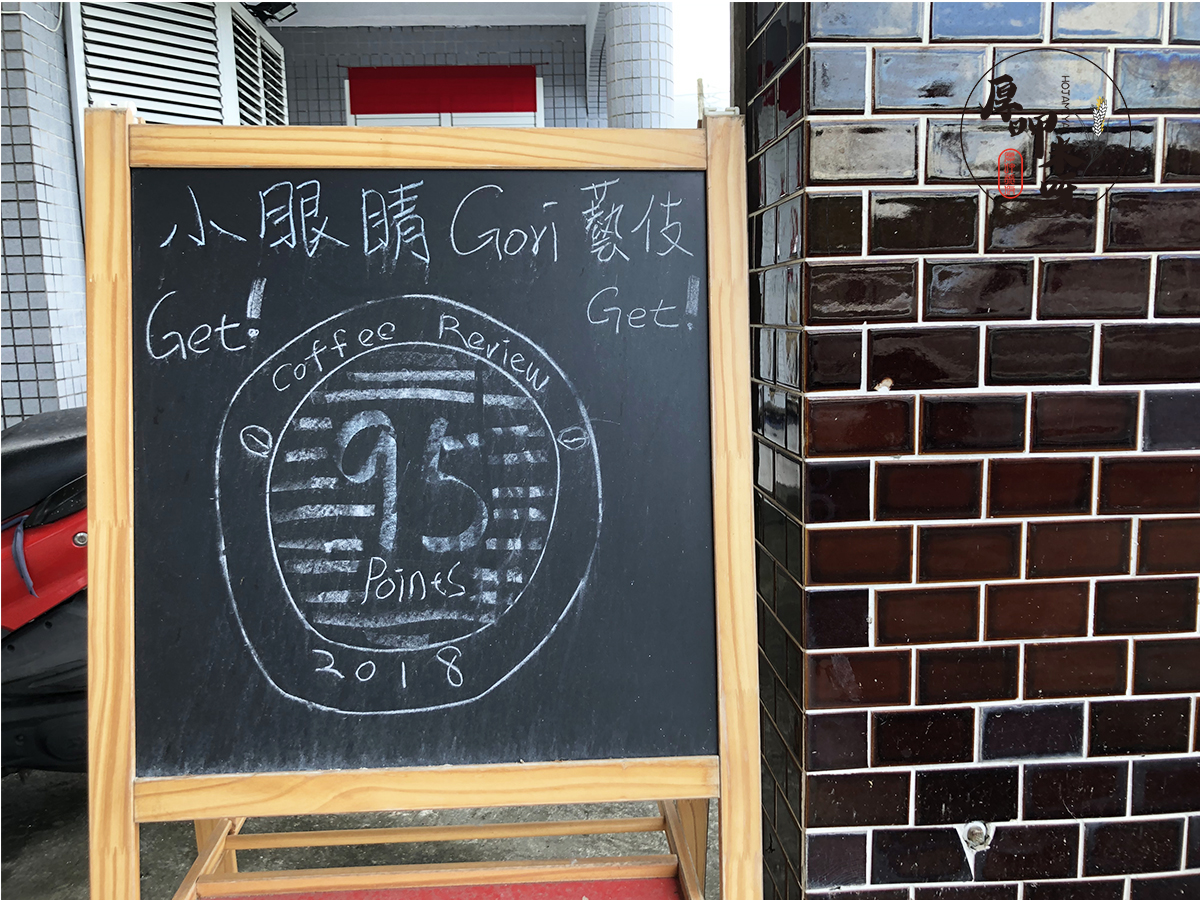 小眼睛Gori藝伎
Get! Get!
Coffee Review
95
Points
2018
厚呷
HOJAM